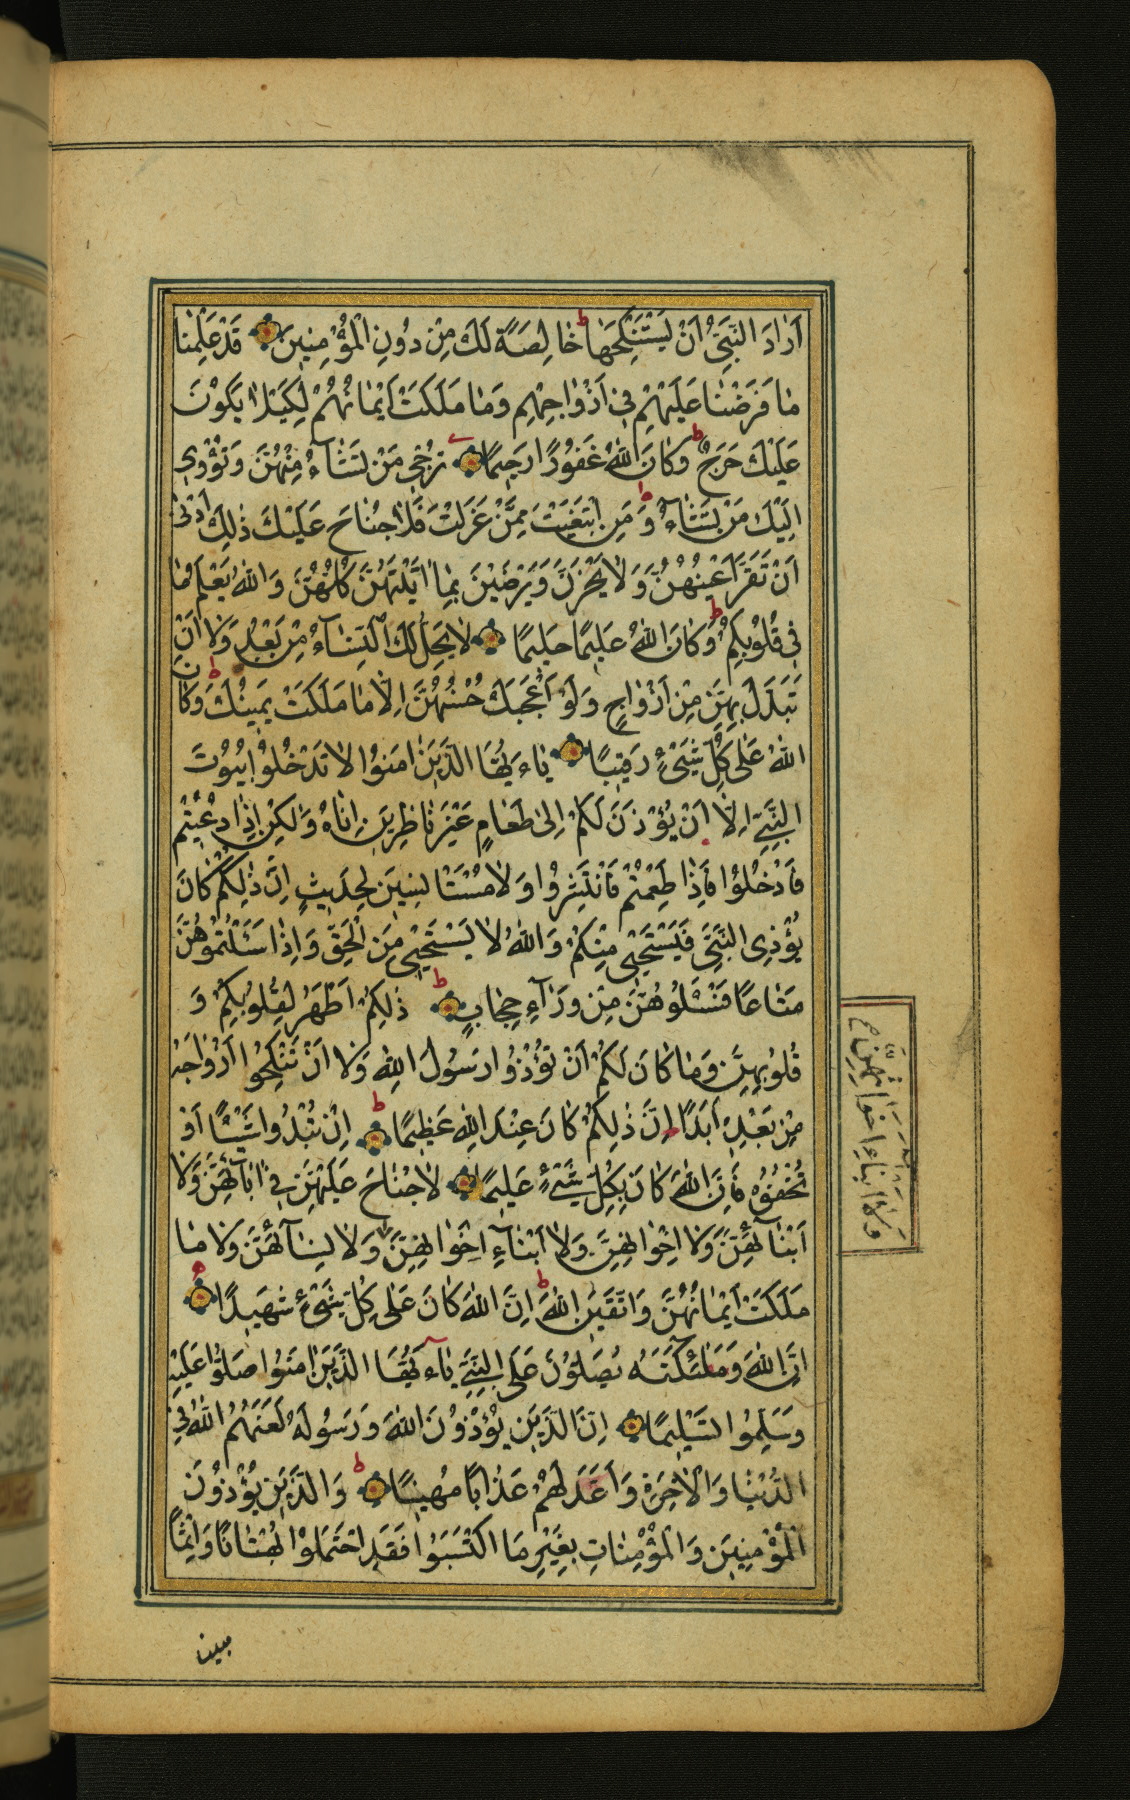 اَرٰادَ النَّبِىُّ اَنْ يَسْتَنْكِحَهٰا خٰالِصَةً لَكَ مِنْ دُونِ الْمُؤْمِنِينَ قَدْ عَلِمْنٰا
مٰا فَرَضْنٰا عَلَيْهِمْ فِى اَزْوٰاجِهِمْ وَمٰا مَلَكَتْ اَيْمٰانُهُمْ لِكَيْلٰا يَكُونَ
عَلَيْكَ حَرَجٌ وَكٰانَ اللّٰهُ غَفُورًا رَحِيمًا تُرْجِى مَنْ تَشٰآءُ مِنْهُنَّ وَتُؤْوِى
اِلَيْكَ مَنْ تَشٰآءُ وَمَنِ ابْتَغَيْتَ مِمَّنْ عَزَلْتَ فَلٰا جُنٰاحَ عَلَيْكَ ذٰلِكَ اَدْنٰى
اَنْ تَقَرَّ اَعْيُنُهُنَّ وَلٰا يَحْزَنَّ وَيَرْضَيْنَ بِمٰا اٰتَيْتَهُنَّ كُلُّهُنَّ وَاللّٰهُ يَعْلَمُ مٰا
فِى قُلُوبِكُمْ وَكٰانَ اللّٰهُ عَلِيمًا حَلِيمًا لٰا يَحِلُّ لَكَ النِّسٰآءُ مِنْ بَعْدُ وَلٰا اَنْ
تَبَدَّلَ بِهِنَّ مِنْ اَزْوٰاجٍ وَلَوْ اَعْجَبَكَ حُسْنُهُنَّ اِلّٰا مٰا مَلَكَتْ يَمِينُكَ وَكٰانَ
اللّٰهُ عَلٰى كُلِّ شَىْءٍ رَقِيبًا يٰاءَيُّهَا الَّذِينَ اٰمَنُوا لٰا تَدْخُلُوا بُيُوتَ
النَّبِىِّ اِلّٰا اَنْ يُؤْذَنَ لَكُمْ اِلٰى طَعٰامٍ غَيْرَ نٰاظِرِينَ اِنٰاهُ وَلٰكِنْ اِذٰا دُعِيتُمْ
فَادْخُلُوا فَاِذٰا طَعِمْتُمْ فَانْتَشِرُوا وَلٰا مُسْتَاْنِسِينَ لِحَدِيثٍ اِنَّ ذٰلِكُمْ كٰانَ
يُؤْذِى النَّبِىَّ فَيَسْتَحْيِى مِنْكُمْ وَاللّٰهُ لٰا يَسْتَحْيِى مِنَ الْحَقِّ وَاِذٰا سَئَلْتُمُوهُنَّ
مَتٰاعًا فَسْئَلُوهُنَّ مِنْ وَرٰآءِ حِجٰابٍ ذٰلِكُمْ اَطْهَرُ لِقُلُوبِكُمْ وَ
قُلُوبِهِنَّ وَمٰا كٰانَ لَكُمْ اَنْ تُؤْذُوا رَسُولَ اللّٰهِ وَلٰا اَنْ تَنْكِحُوا اَزْوٰاجَهُ
مِنْ بَعْدِهِ اَبَدًا اِنَّ ذٰلِكُمْ كٰانَ عِنْدَ اللّٰهِ عَظِيمًا اِنْ تُبْدُوا شَيْئًا اَوْ
تُخْفُوهُ فَاِنَّ اللّٰهَ كٰانَ بِكُلِّ شَىْءٍ عَلِيمًا لٰا جُنٰاحَ عَلَيْهِنَّ فِى اٰبٰآئِهِنَّ وَلٰا
اَبْنٰآئِهِنَّ وَلٰا اِخْوٰانِهِنَّ وَلٰا اَبْنٰآءِ اِخْوٰانِهِنَّ وَلٰا نِسٰآئِهِنَّ وَلٰا مٰا
مَلَكَتْ اَيْمٰانُهُنَّ وَاتَّقِينَ اللّٰهَ اِنَّ اللّٰهَ كٰانَ عَلٰى كُلِّ شَىْءٍ شَهِيدًا
اِنَّ اللّٰهَ وَمَلٰئِكَتَهُ يُصَلُّونَ عَلَى النَّبِىِّ يٰاءَيُّهَا الَّذِينَ اٰمَنُوا صَلُّوا عَلَيْهِ
وَسَلِّمُوا تَسْلِيمًا اِنَّ الَّذِينَ يُؤْذُونَ اللّٰهَ وَرَسُولَهُ لَعَنَهُمُ اللّٰهُ فِى
الدُّنْيٰا وَالْاٰخِرَةِ وَاَعَدَّ لَهُمْ عَذٰابًا مُهِينًا وَالَّذِينَ يُؤْذُونَ
الْمُؤْمِنِينَ وَالْمُؤْمِنٰاتِ بِغَيْرِ مَا اكْتَسَبُوا فَقَدِ احْتَمَلُوا بُهْتٰانًا وَاِثْمًا
وَلٰا اَبْنٰاءِ اَخَوٰاتِهِنَّ
مبينا